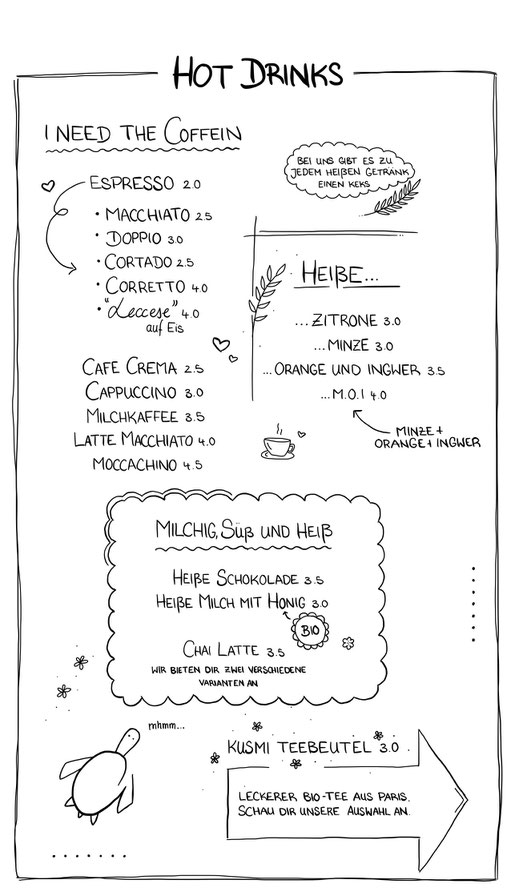 HOT DRINKS
I NEED THE COFFEIN
ESPRESSO 2.0
• MACCHIATO 2.5
• DOPPIO 3.0
• CORTADO 2.5
• CORRETTO 4.0
• "Leccese" 4.0
auf Eis
CAFE CREMA 2.5
CAPPUCCINO 3.0
MILCHKAFFEE 3.5
LATTE MACCHIATO 4.0
MOCCACHINO 4.5
BEI UNS GIBT ES ZU
JEDEM HEIßEN GETRÄNK
EINEN KEKS
HEIßE...
...ZITRONE 3.0
...MINZE 3.0
...ORANGE UND INGWER 3.5
...M.O.I 4.0
MINZE +
ORANGE + INGWER
MILCHIG, SÜß UND HEIß
HEIßE SCHOKOLADE 3.5
HEIßE MILCH MIT HONIG 3.0
BIO
CHAI LATTE 3.5
WIR BIETEN DIR ZWEI VERSCHIEDENE
VARIANTEN AN
mhmm...
KUSMI TEEBEUTEL 3.0
LECKERER BIO-TEE AUS PARIS.
SCHAU DIR UNSERE AUSWAHL AN.